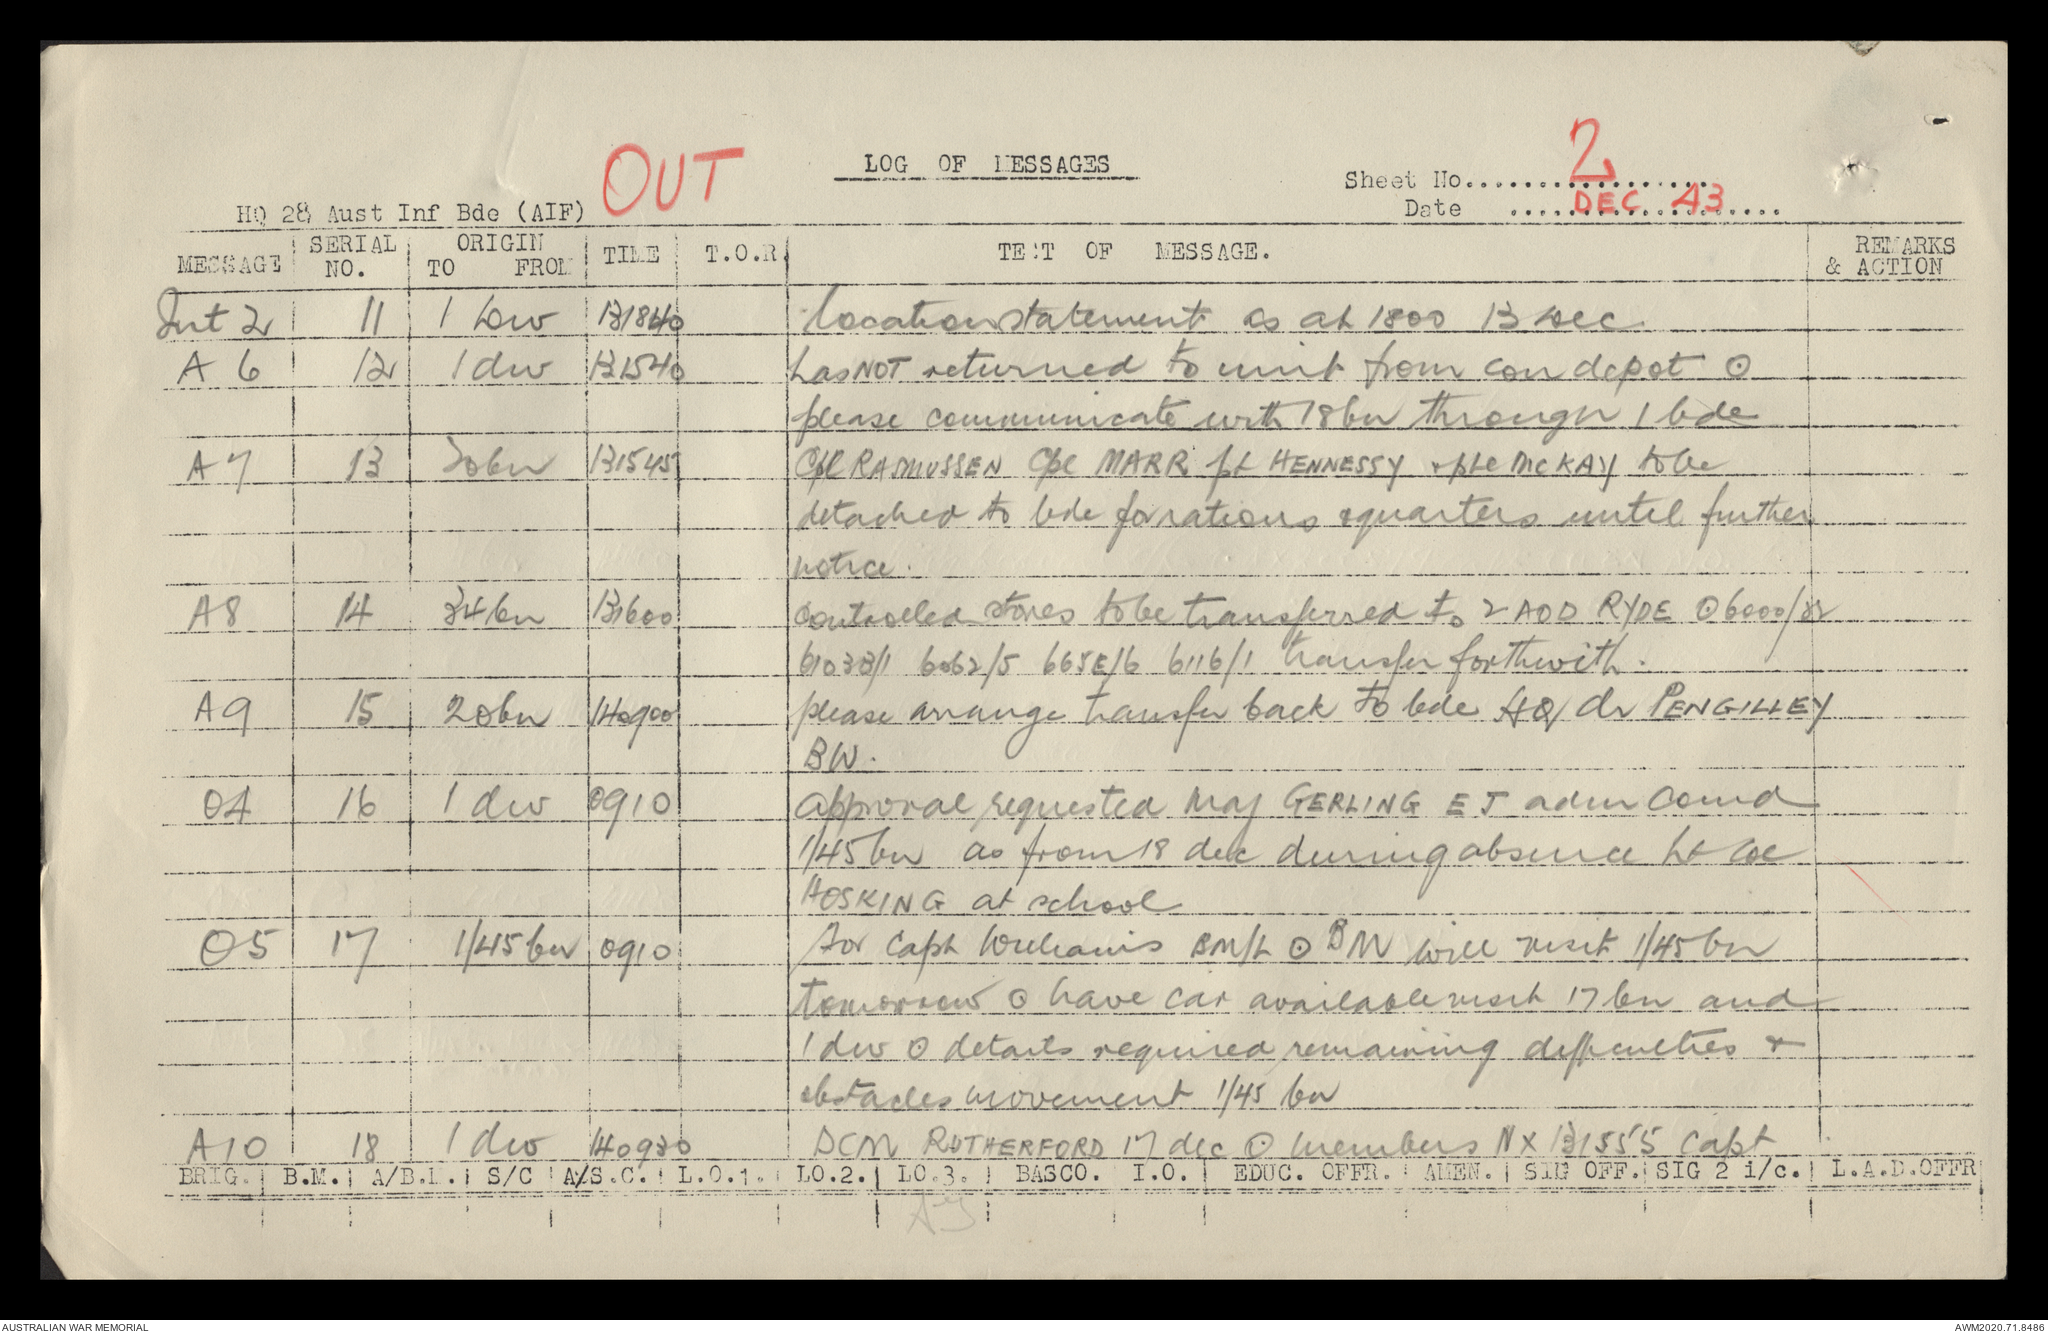 OUT
LOG OF MESSAGES
Sheet No.. 2
Date DEC 43
HQ 28 Aust Inf Bde (AIF)
MESSAGE SERIAL NO. ORIGIN TO FROM TIME T.O.R. TEXT OF MESSAGE. REMARKS & ACTION
Int 2 11 1 Div 131840 Location statement as at 1800 13 Dec
A 6 12 1 div 131540 has NOT returned to unit from con depot ⊙
please communicate with 18 bn through 1 bde
A7 13 20 bn 131545 Cpl RASMUSSEN Cpl MARR pt HENNESSY + pte McKAY to be
detached to bde for rations & quarters until further
notice.
A8 14 34 bn 131600 controlled stores to be transferred to 2 AOD RYDE ⊙ 6000/82
61033/1 6062/5 665E/6 6116/1 transfer forthwith.
A9 15 20 bn 140900 please arrange transfer back to bde HQ dr PENGILLEY
BW.
O4 16 1 div 0910 approval requested Maj GERLING E J adm comd
1/45 bn as from 18 dec during absence Lt Col
HOSKING at school
O5 17 1/45 bn 0910 for Capt Williams BM/L ⊙ BM will visit 1/45 bn
tomorrow ⊙ have car available visit 17 bn and
1 div ⊙ details required remaining difficulties +
obstacles movement 1/45 bn
A10 18 1 div 140930 DCM RUTHERFORD 17 dec ⊙ members NX 131555 Capt
BRIG. B.M. A/B.M. S/C A/S.C. L.O.1. LO.2. LO.3. BASCO. I.O. EDUC. OFFR. AMEN. SIG OFF. SIG 2 i/c. L.A.D.OFFR
AUSTRALIAN WAR MEMORIAL
AWM2020.71.8486